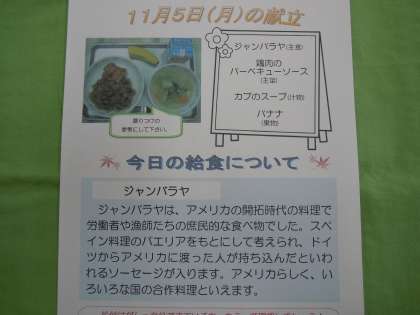 11月5日(月)の献立
ジャンバラヤ(主食)
鶏肉の
バーベキューソース
(主菜)
カブのスープ(汁物)
バナナ
(果物)
盛りつけの
参考にして下さい。
今日の給食について
ジャンバラヤ
ジャンバラヤは、アメリカの開拓時代の料理で
労働者や漁師たちの庶民的な食べ物でした。ス
ペイン料理のパエリアをもとにして考えられ、ドイ
ツからアメリカに渡った人が持ち込んだといわ
れるソーセージが入ります。アメリカらしく、い
ろいろな国の合作料理といえます。